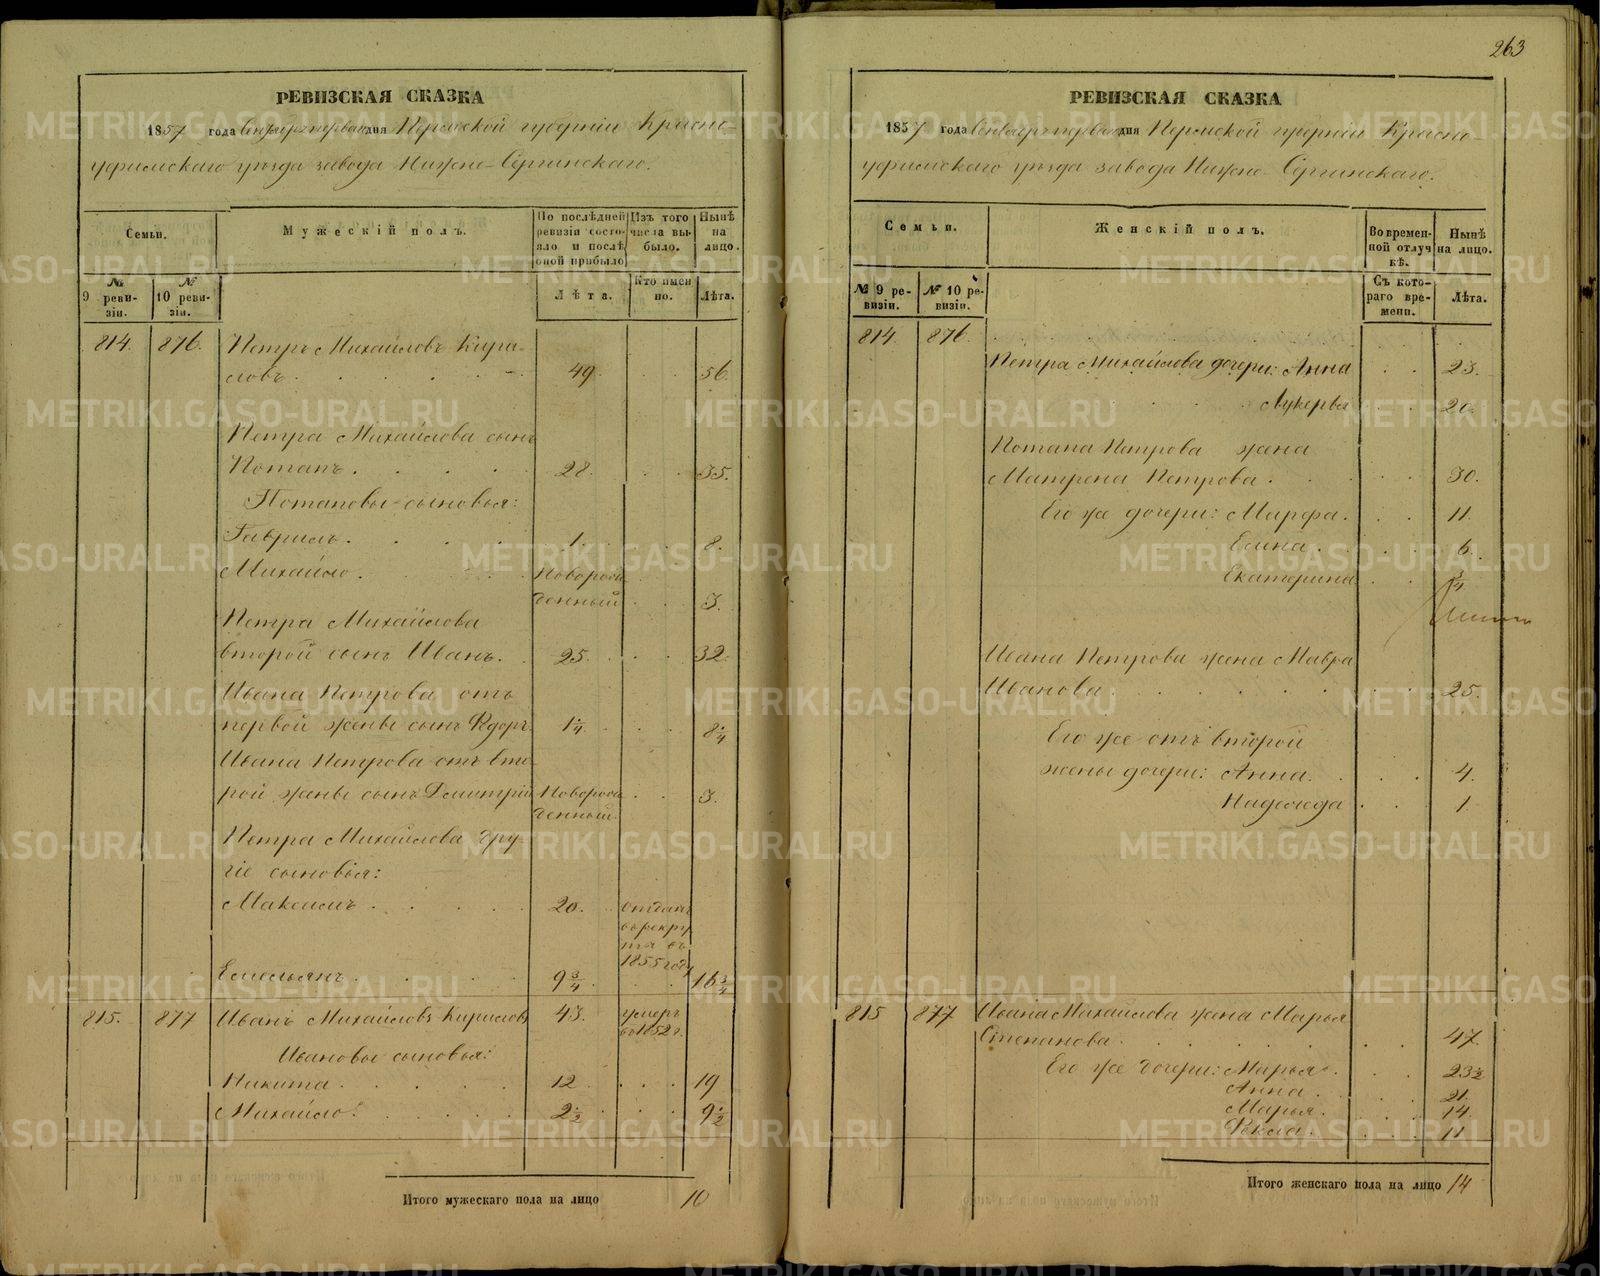 263
РЕВИЗСКАЯ СКАЗКА
1857 года Генваря первого дня Пермской губернии Красно-
уфимскаго уезда завода Нижне-Сергинскаго.
Семьи.
Мужескій полъ.
По послѣдней ревизіи состояло и послѣ оной прибыло
Изъ того числа выбыло.
Нынѣ на лицо.
№ 9 ревизіи.
№ 10 ревизіи.
Лѣта.
Кто имянно.
Лѣта.
814. 876. Петръ Михайловъ Кири-
ловъ 49. 56.
Петра Михайлова сынъ
Потапъ. 28. 35.
Потаповы сыновья:
Гаврилъ. 1. 8.
Михайло. Новорож
денный 3.
Петра Михайлова
второй сынъ Иванъ. 25. 32.
Ивана Петрова отъ
первой жены сынъ Ѳдоръ 1¼. 8¼
Ивана Петрова отъ вто-
рой жены сынъ Дмитрій Новорож
денный. 3.
Петра Михайлова дру-
гіе сыновья:
Максимъ 20. отданъ
въ рекру
та въ
1855 году
Емельянъ 9¾. 16¾
815. 877 Иванъ Михайловъ Кириловъ 43. умеръ
въ 1852 г.
Ивановы сыновья:
Никита. 12. 19
Михайло. 2½ 9½
Итого мужескаго пола на лицо 10
РЕВИЗСКАЯ СКАЗКА
1857 года Генваря первого дня Пермской губерніи Красно-
уфимскаго уезда завода Нижне-Сергинскаго.
Семьи.
Женскій полъ.
Во временной отлучкѣ.
Нынѣ на лицо.
№ 9 ревизіи.
№ 10 ревизіи.
Съ котораго времени.
Лѣта.
814. 876.
Петра Михайлова дочери: Анна 23.
Лукерья 20.
Потапа Петрова жена
Матрена Петрова. 30.
Его же дочери: Марфа. 11.
Елина. 6.
Екатерина ¾
Ивана Петрова жена Мавра
Иванова. 25.
Его же отъ второй
жены дочери: Анна. 4.
Надежда 1.
815 877 Ивана Михайлова жена Марья
Степанова. 47.
Его же дочери: Марья. 23½
Анна. 21.
Марья. 14.
Ѳекла. 11
Итого женскаго пола на лицо 14
METRIKI.GASO-URAL.RU